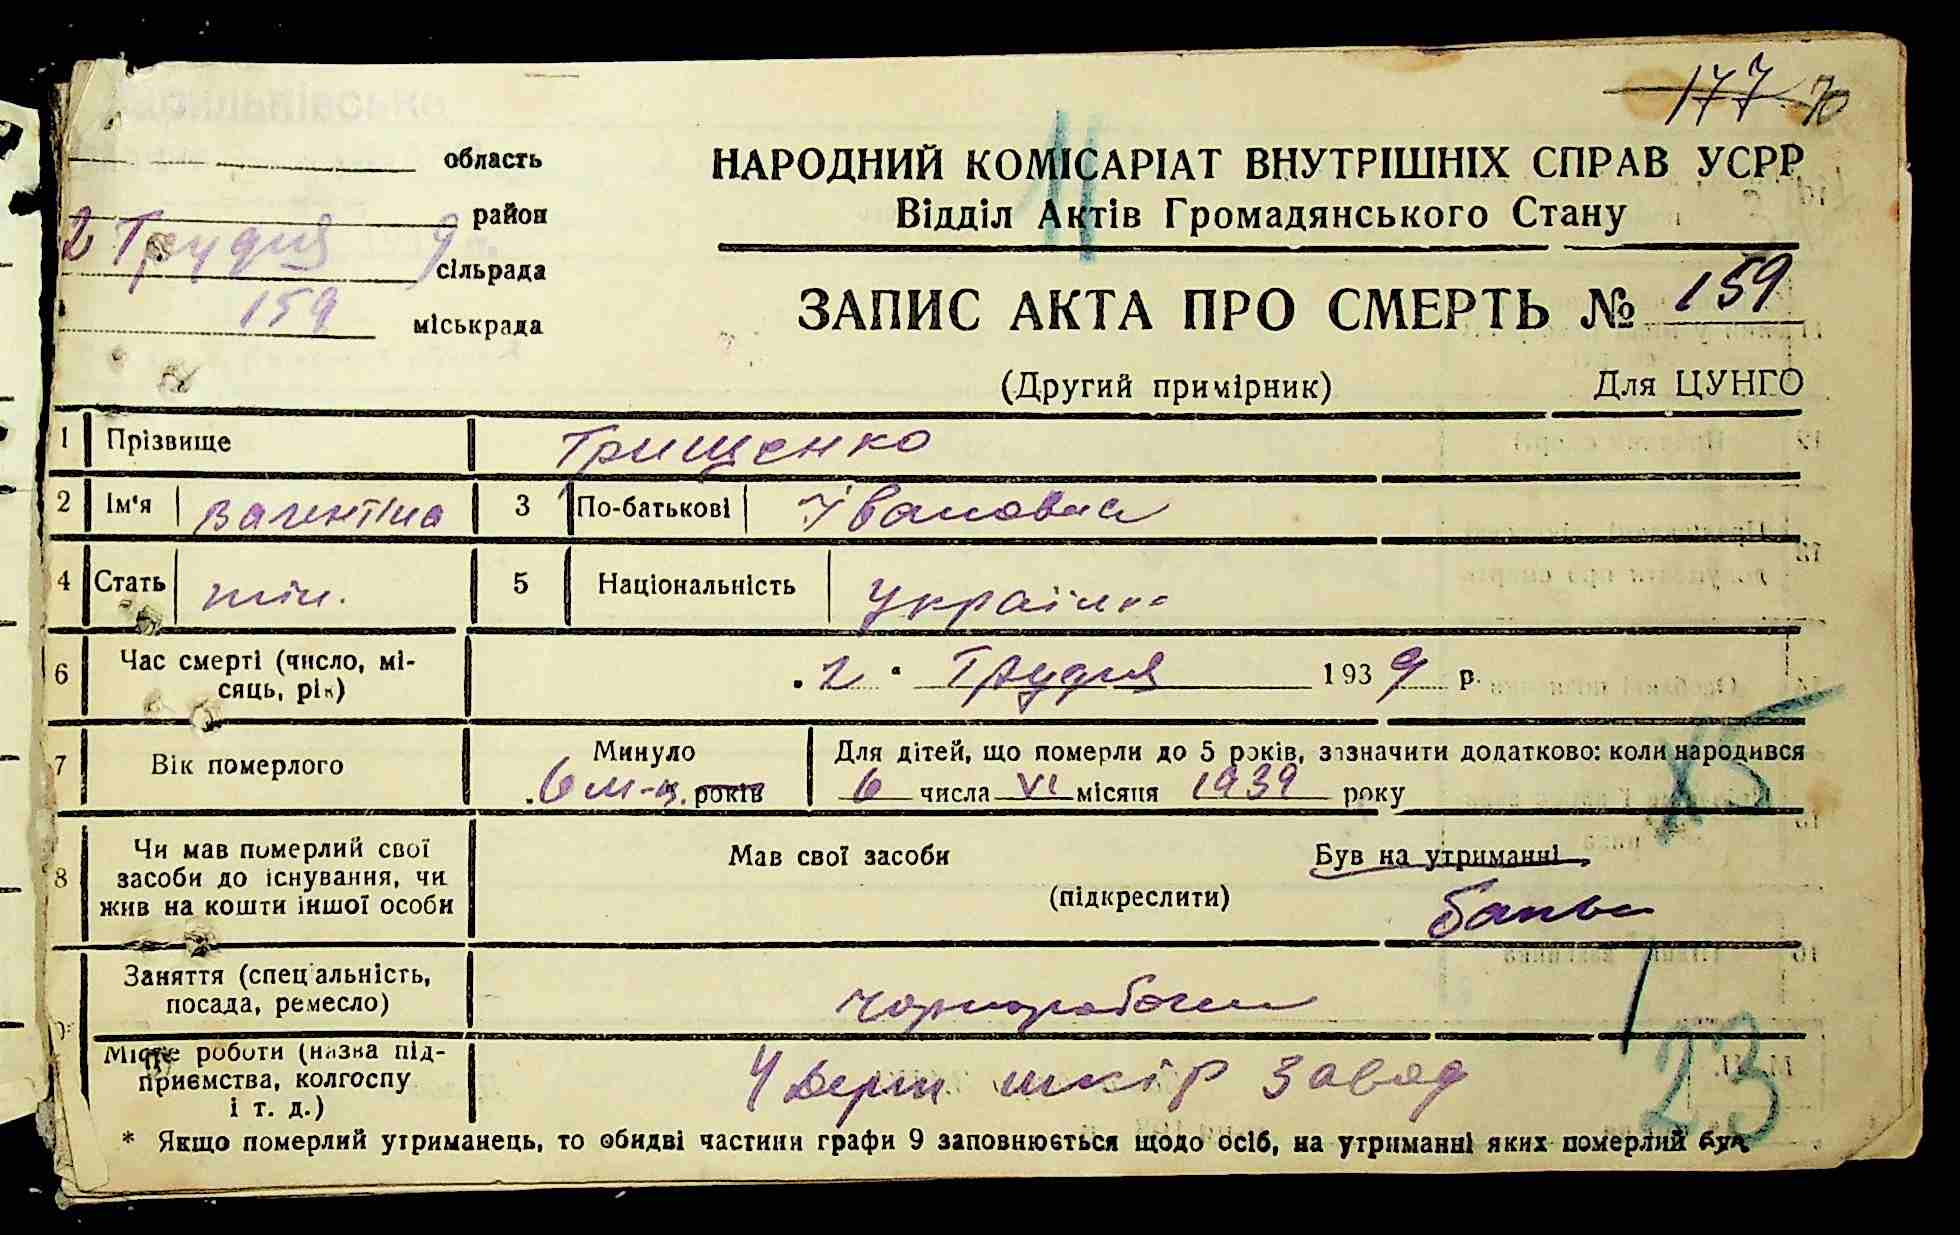 177 70
область
район
2 Грудня 9
сільрада
159
міськрада
НАРОДНИЙ КОМІСАРІАТ ВНУТРІШНІХ СПРАВ УСРР
Відділ Актів Громадянського Стану
11
ЗАПИС АКТА ПРО СМЕРТЬ № 159
(Другий примірник) Для ЦУНГО
1 Прізвище Грищенко
2 Ім'я Валентіна 3 По-батькові Івановна
4 Стать жін. 5 Національність Українка
6 Час смерті (число, мі-
сяць, рік) 2 Грудня 1939 р.
7 Вік померлого Минуло
6 м-ц. років
Для дітей, що померли до 5 років, зазначити додатково: коли народився
6 числа VI місяця 1939 року
8 Чи мав померлий свої
засоби до існування, чи
жив на кошти іншої особи
Мав свої засоби Був на утриманні
(підкреслити)
батька
Заняття (спеціальність,
посада, ремесло) чорноробочи
Місце роботи (назва під-
приємства, колгоспу
і т. д.)
шкір завод
23
* Якщо померлий утриманець, то обидві частини графи 9 заповнюється щодо осіб, на утриманні яких померлий був